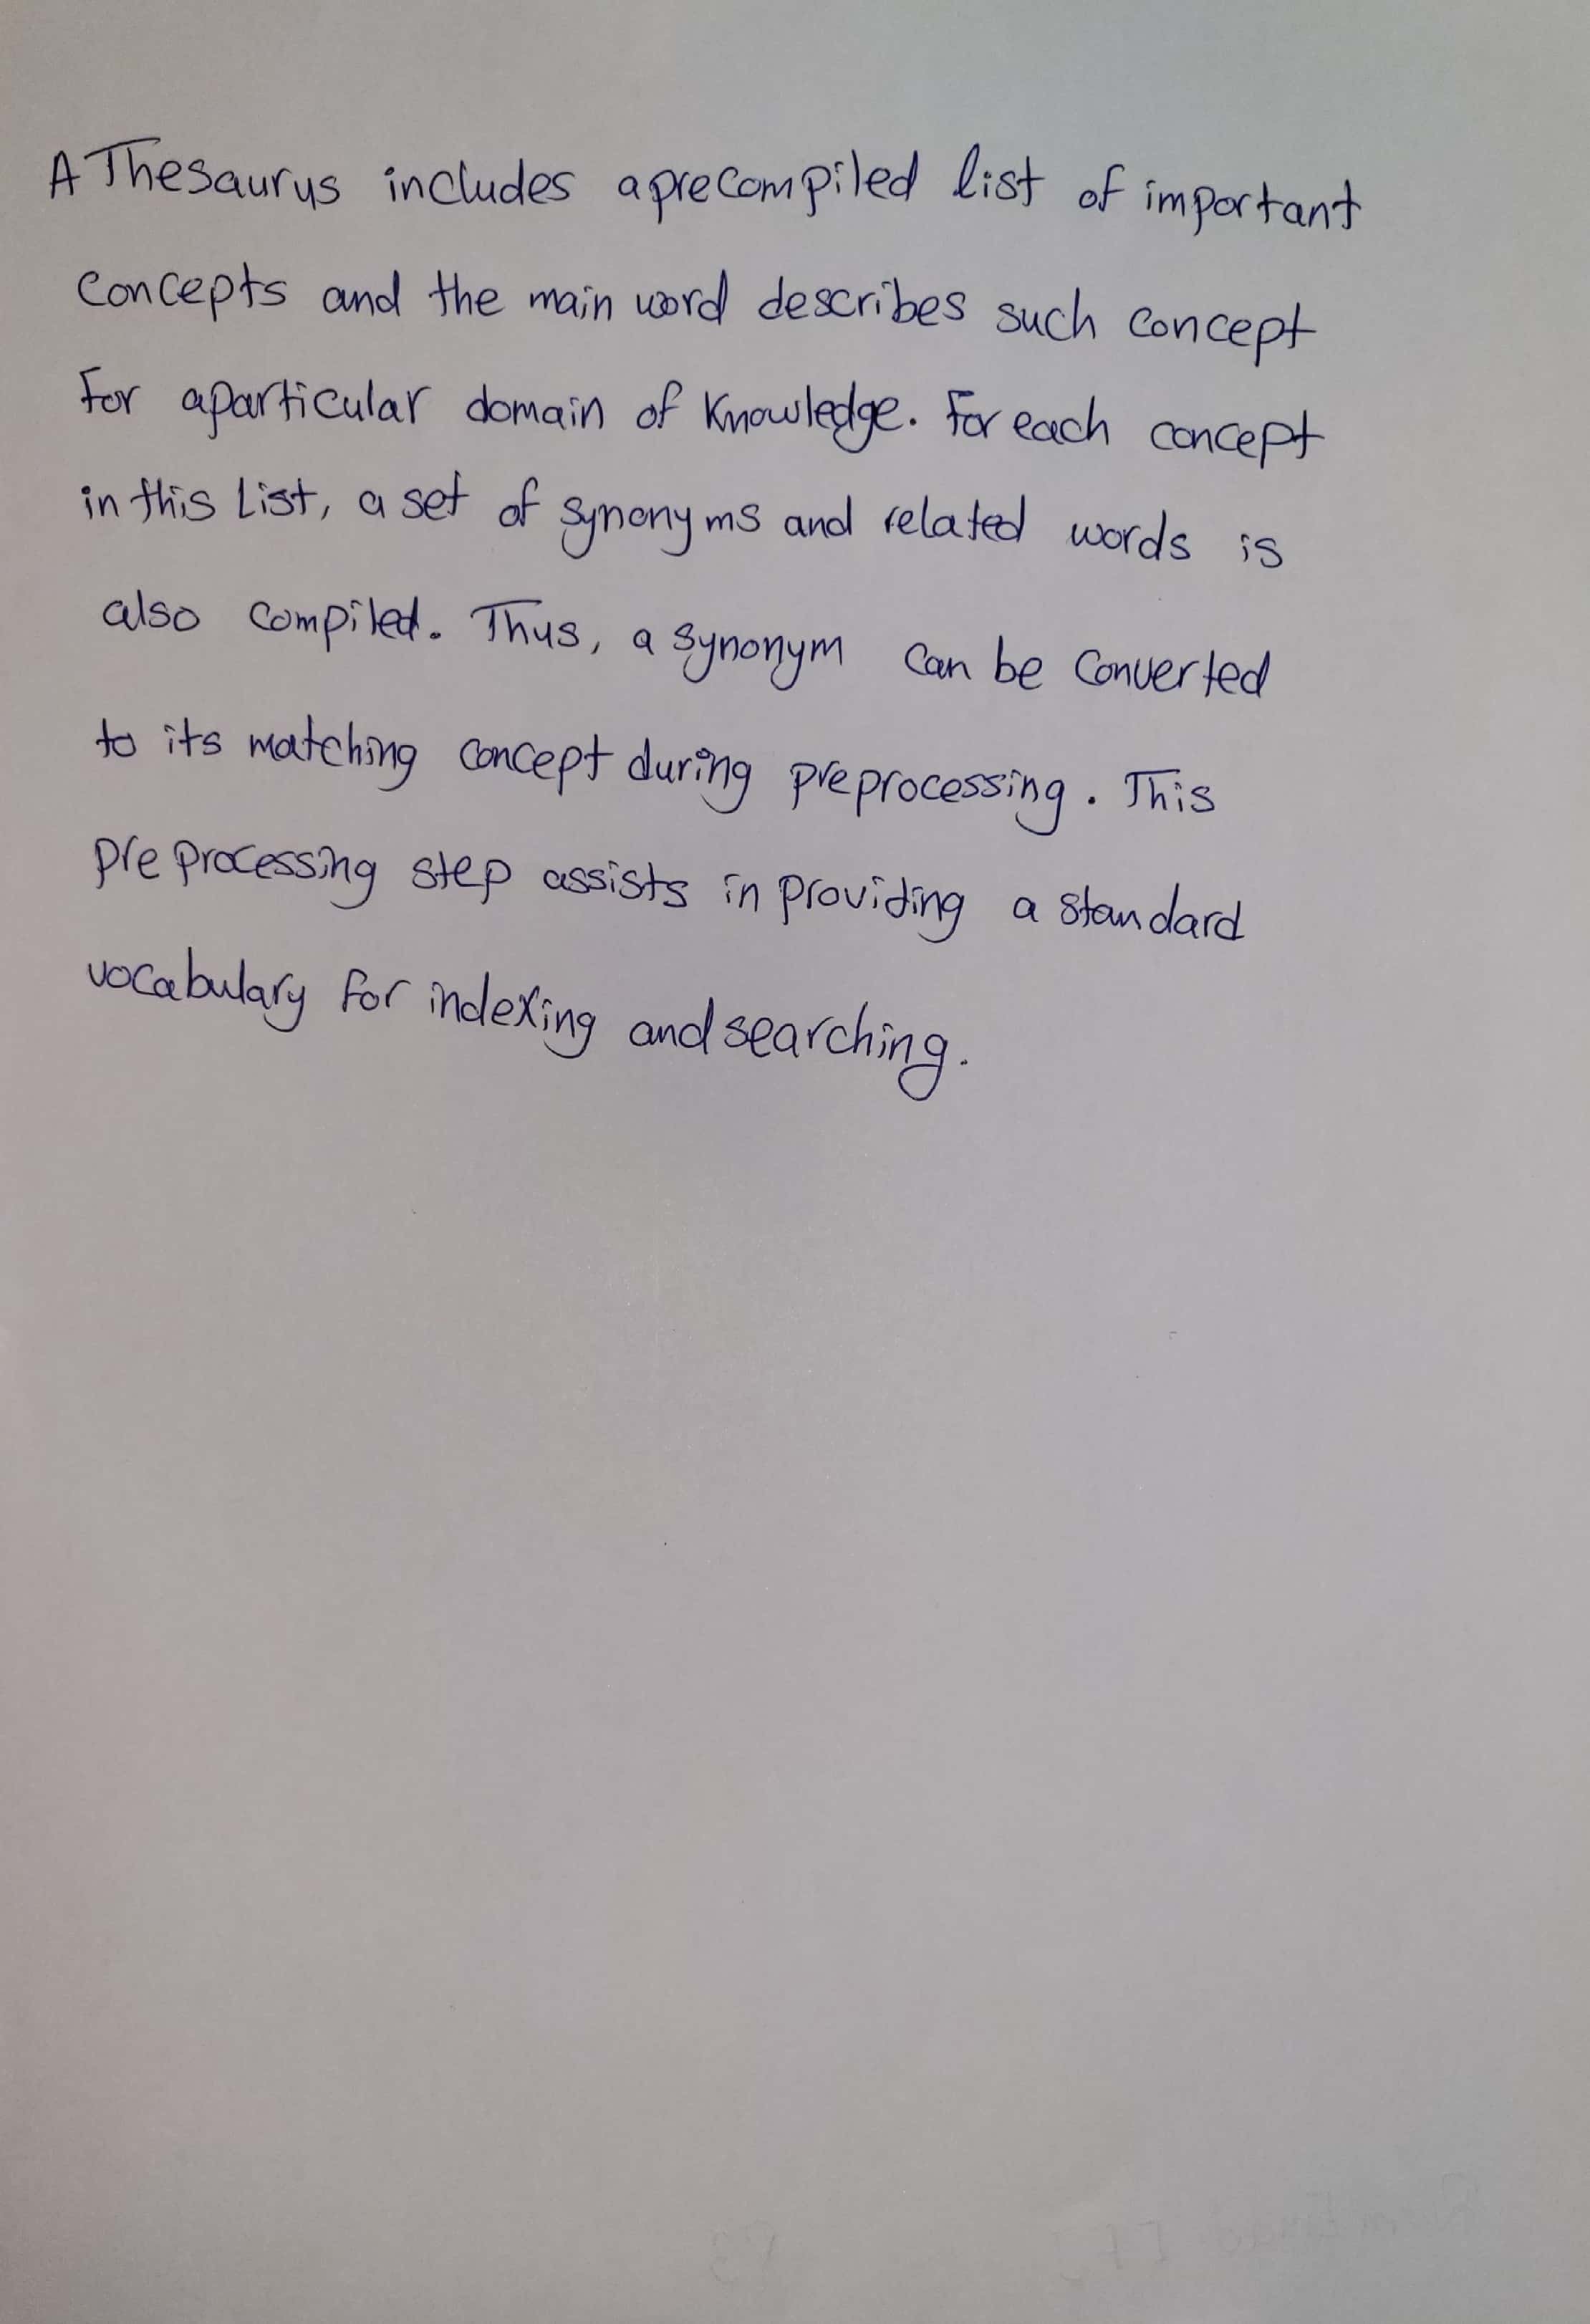 A Thesaurus includes a precompiled list of important
concepts and the main word describes such concept
For a particular domain of Knowledge. For each concept
in this List, a set of synonyms and related words is
also compiled. Thus, a synonym can be converted
to its matching concept during preprocessing. This
preprocessing step assists in providing a standard
vocabulary for indexing and searching.